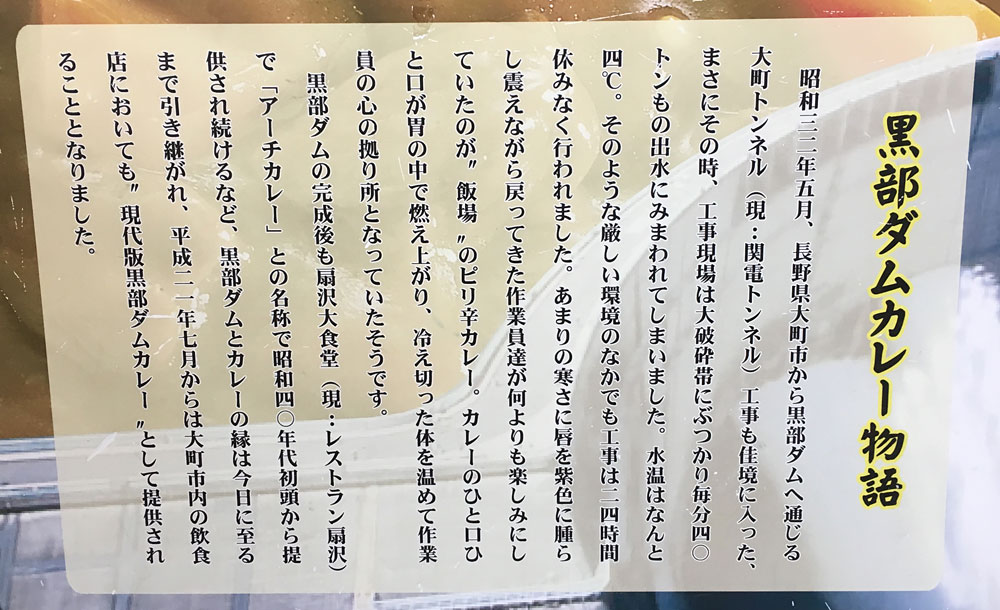 黒部ダムカレー物語
昭和三二年五月、長野県大町市から黒部ダムへ通じる
大町トンネル（現：関電トンネル）工事も佳境に入った、
まさにその時、工事現場は大破砕帯にぶつかり毎分四〇
トンもの出水にみまわれてしまいました。水温はなんと
四℃。そのような厳しい環境のなかでも工事は二四時間
休みなく行われました。あまりの寒さに唇を紫色に腫ら
し震えながら戻ってきた作業員達が何よりも楽しみにし
ていたのが〝飯場〟のピリ辛カレー。カレーのひと口ひ
と口が胃の中で燃え上がり、冷え切った体を温めて作業
員の心の拠り所となっていたそうです。
黒部ダムの完成後も扇沢大食堂（現：レストラン扇沢）
で「アーチカレー」との名称で昭和四〇年代初頭から提
供され続けるなど、黒部ダムとカレーの縁は今日に至る
まで引き継がれ、平成二一年七月からは大町市内の飲食
店においても〝現代版黒部ダムカレー〟として提供され
ることとなりました。